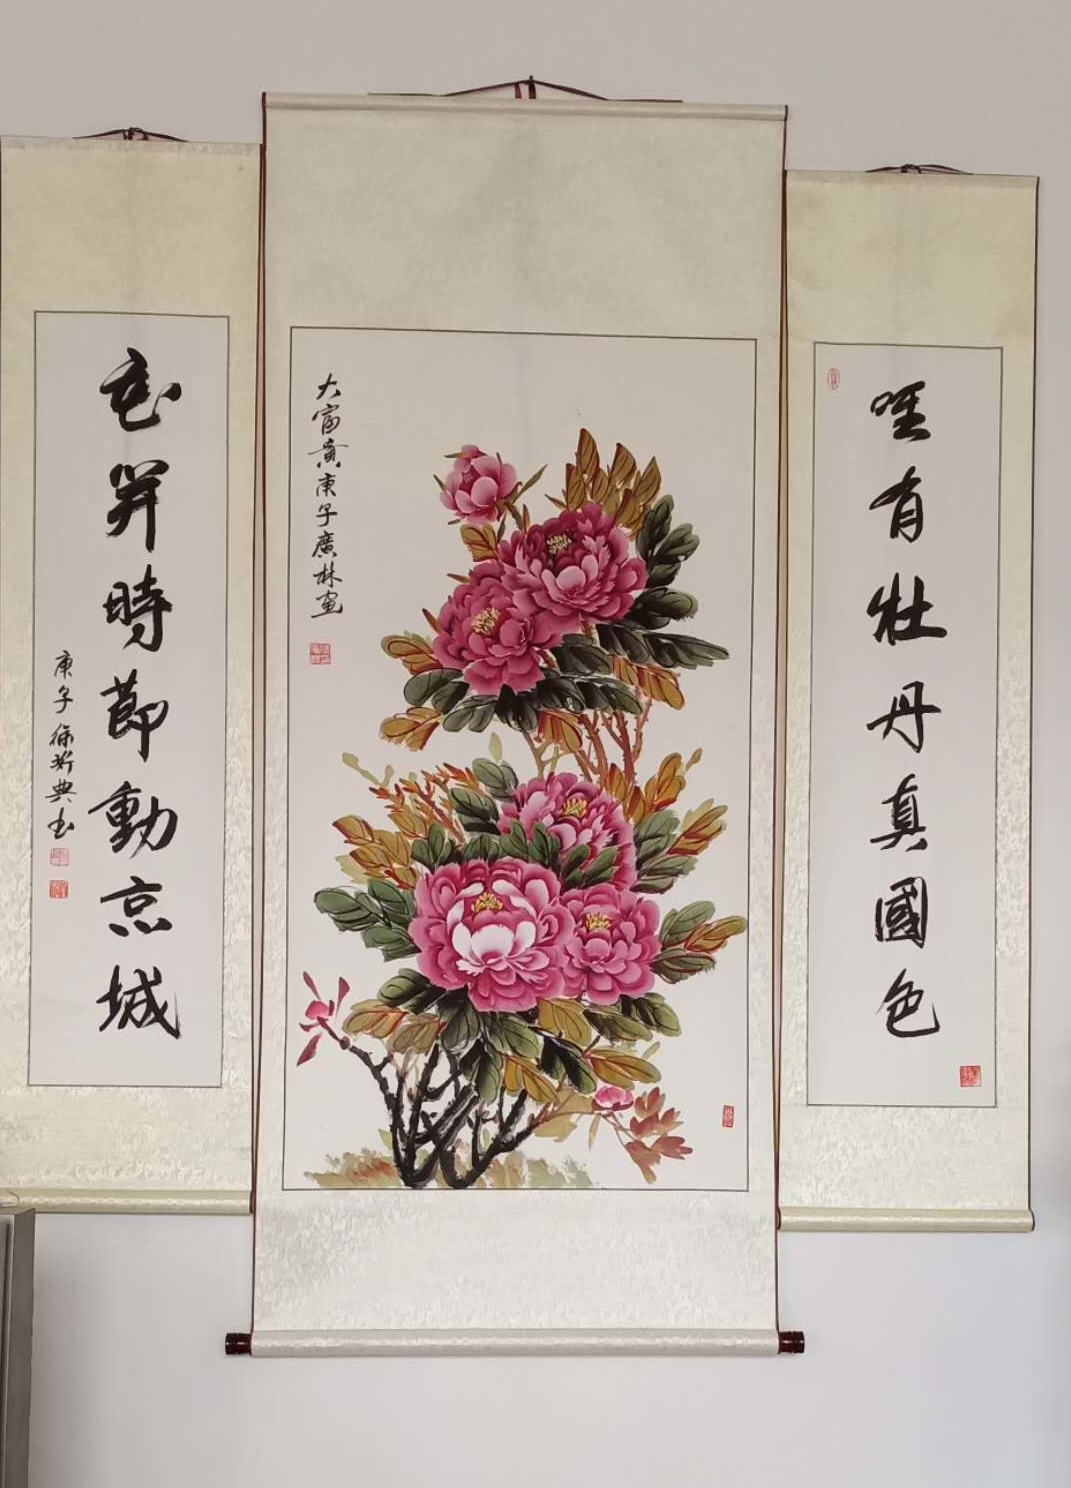 唯有牡丹真國色
花開時節動京城
庚子徐斯典书
大富貴庚子廣林画